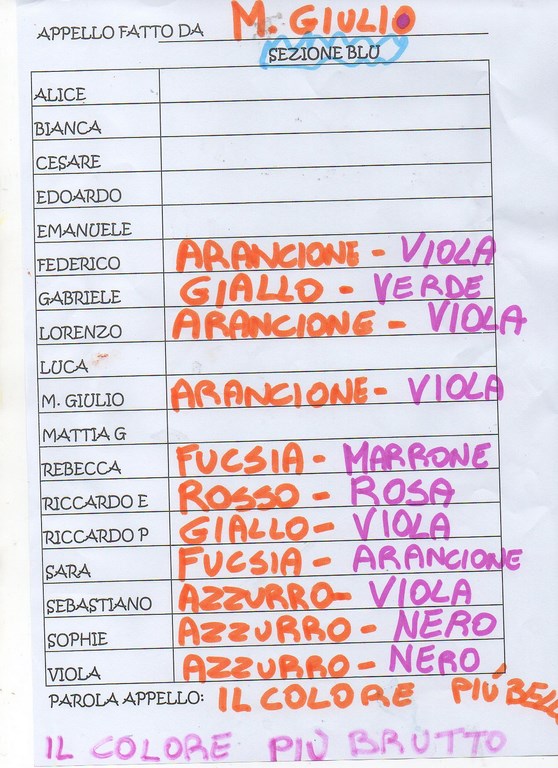 APPELLO FATTO DA M. GIULIO
SEZIONE BLU
ALICE
BIANCA
CESARE
EDOARDO
EMANUELE
FEDERICO ARANCIONE - VIOLA
GABRIELE GIALLO - VERDE
LORENZO ARANCIONE - VIOLA
LUCA
M. GIULIO ARANCIONE - VIOLA
MATTIA G
REBECCA FUCSIA - MARRONE
RICCARDO E ROSSO - ROSA
RICCARDO P GIALLO - VIOLA
SARA FUCSIA - ARANCIONE
SEBASTIANO AZZURRO - VIOLA
SOPHIE AZZURRO - NERO
VIOLA AZZURRO - NERO
PAROLA APPELLO: IL COLORE PIÚ BELL
IL COLORE PIÙ BRUTTO